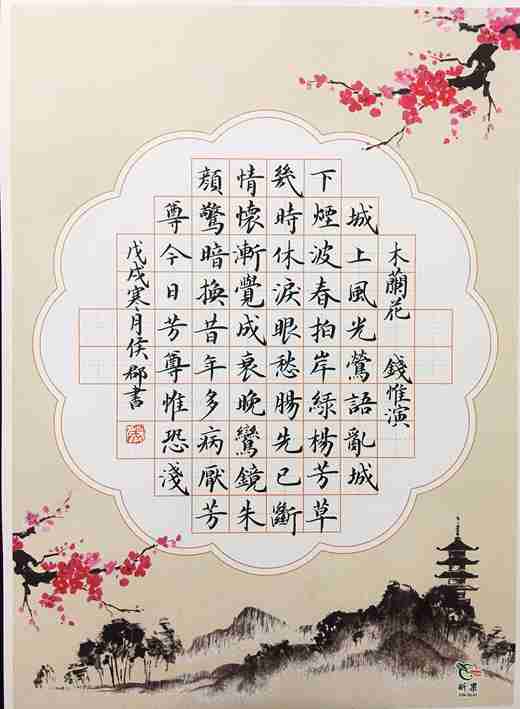 木蘭花 錢惟演
城上風光鶯語亂城
下煙波春拍岸綠楊芳草
幾時休淚眼愁腸先已斷
情懷漸覺成衰晚鸞鏡朱
顏驚暗換昔年多病厭芳
尊今日芳尊惟恐淺
戊戌寒月侯郡書